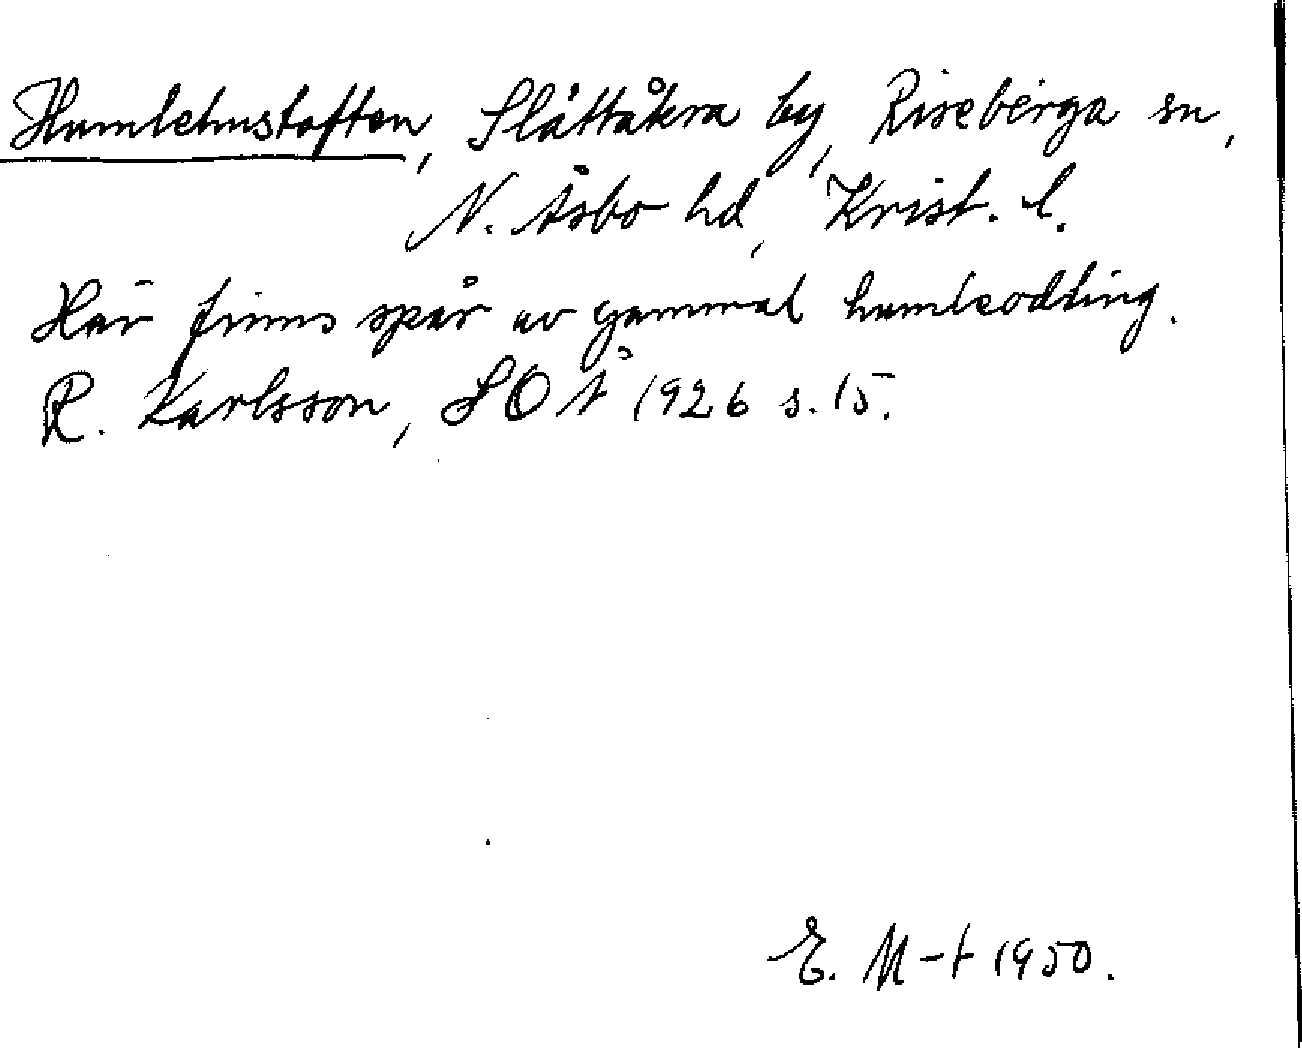 Humlehustoften, Slättåkra by, Riseberga sn,
N. Åsbo hd, Krist. l.
Här finns spår av gammal humleodling.
R. Karlsson, SOÅ 1926 s. 15.
E. M-t 1950.